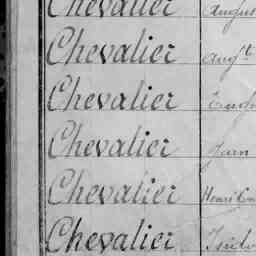 Chevalier Augus
Chevalier Aug.te
Chevalier
Chevalier Jean
Chevalier Henri
Chevalier Isido